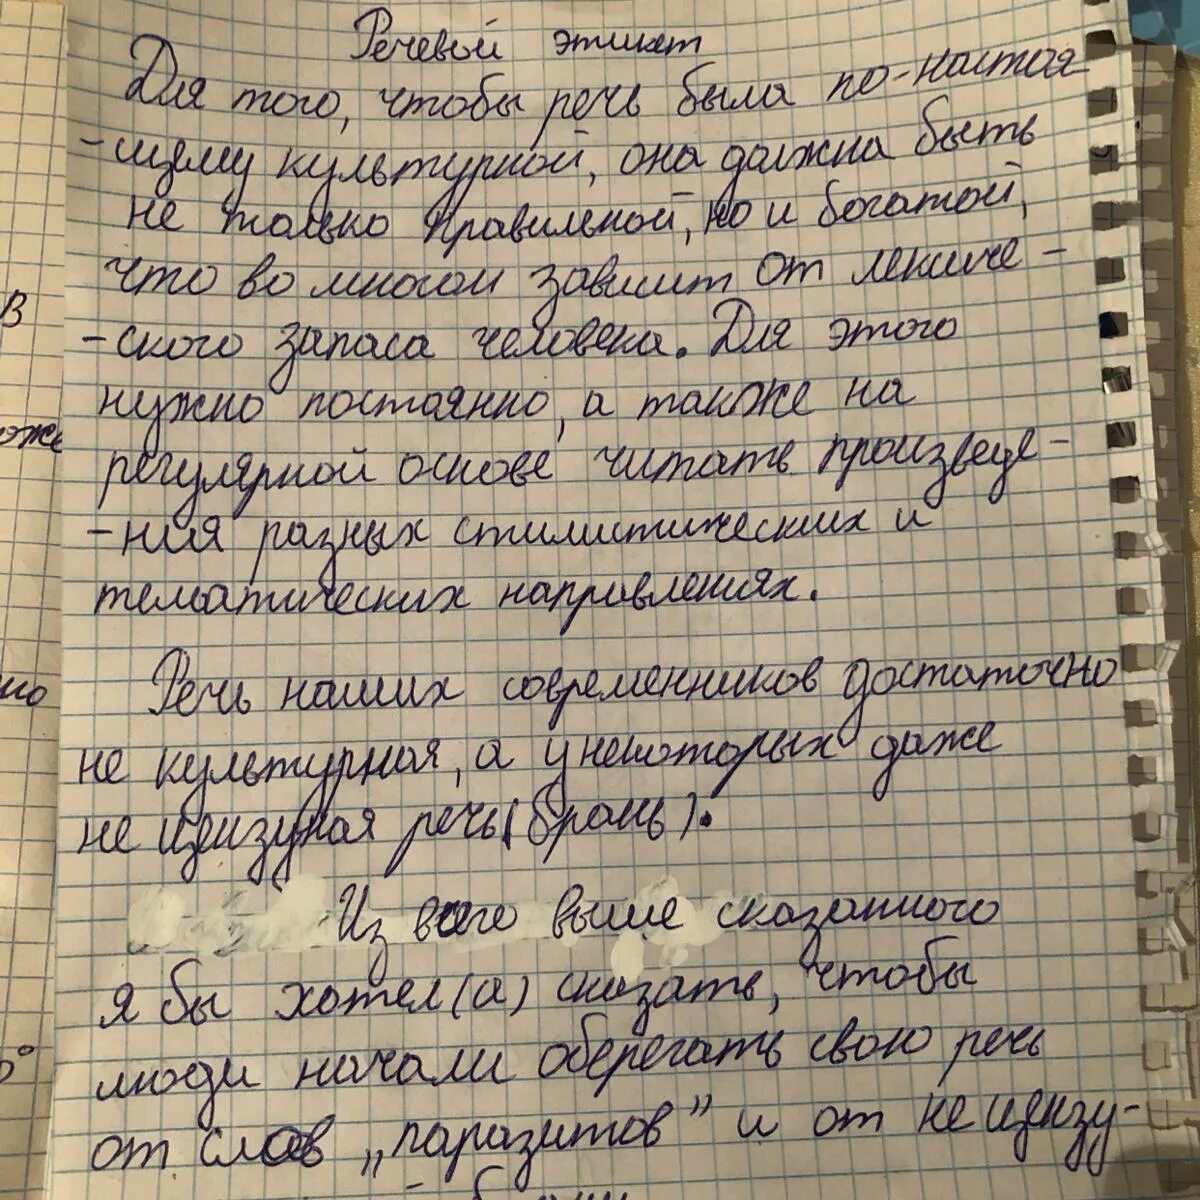 Речевой этикет
Для того, чтобы речь была по-настоя
-щему культурной, она должна быть
не только правильной, но и богатой,
что во многом зависит от лексиче-
-ского запаса человека. Для этого
нужно постоянно, а также на
регулярной основе читать произведе-
-ния разных стилистических и
тематических направлениях.
Речь наших современников достаточно
не культурная, а у некоторых даже
не цензурная речь (брань).
Из всего выше сказанного
я бы хотел(а) сказать, чтобы
люди начали оберегать свою речь
от слов „паразитов" и от не цензу-
В
оже
но